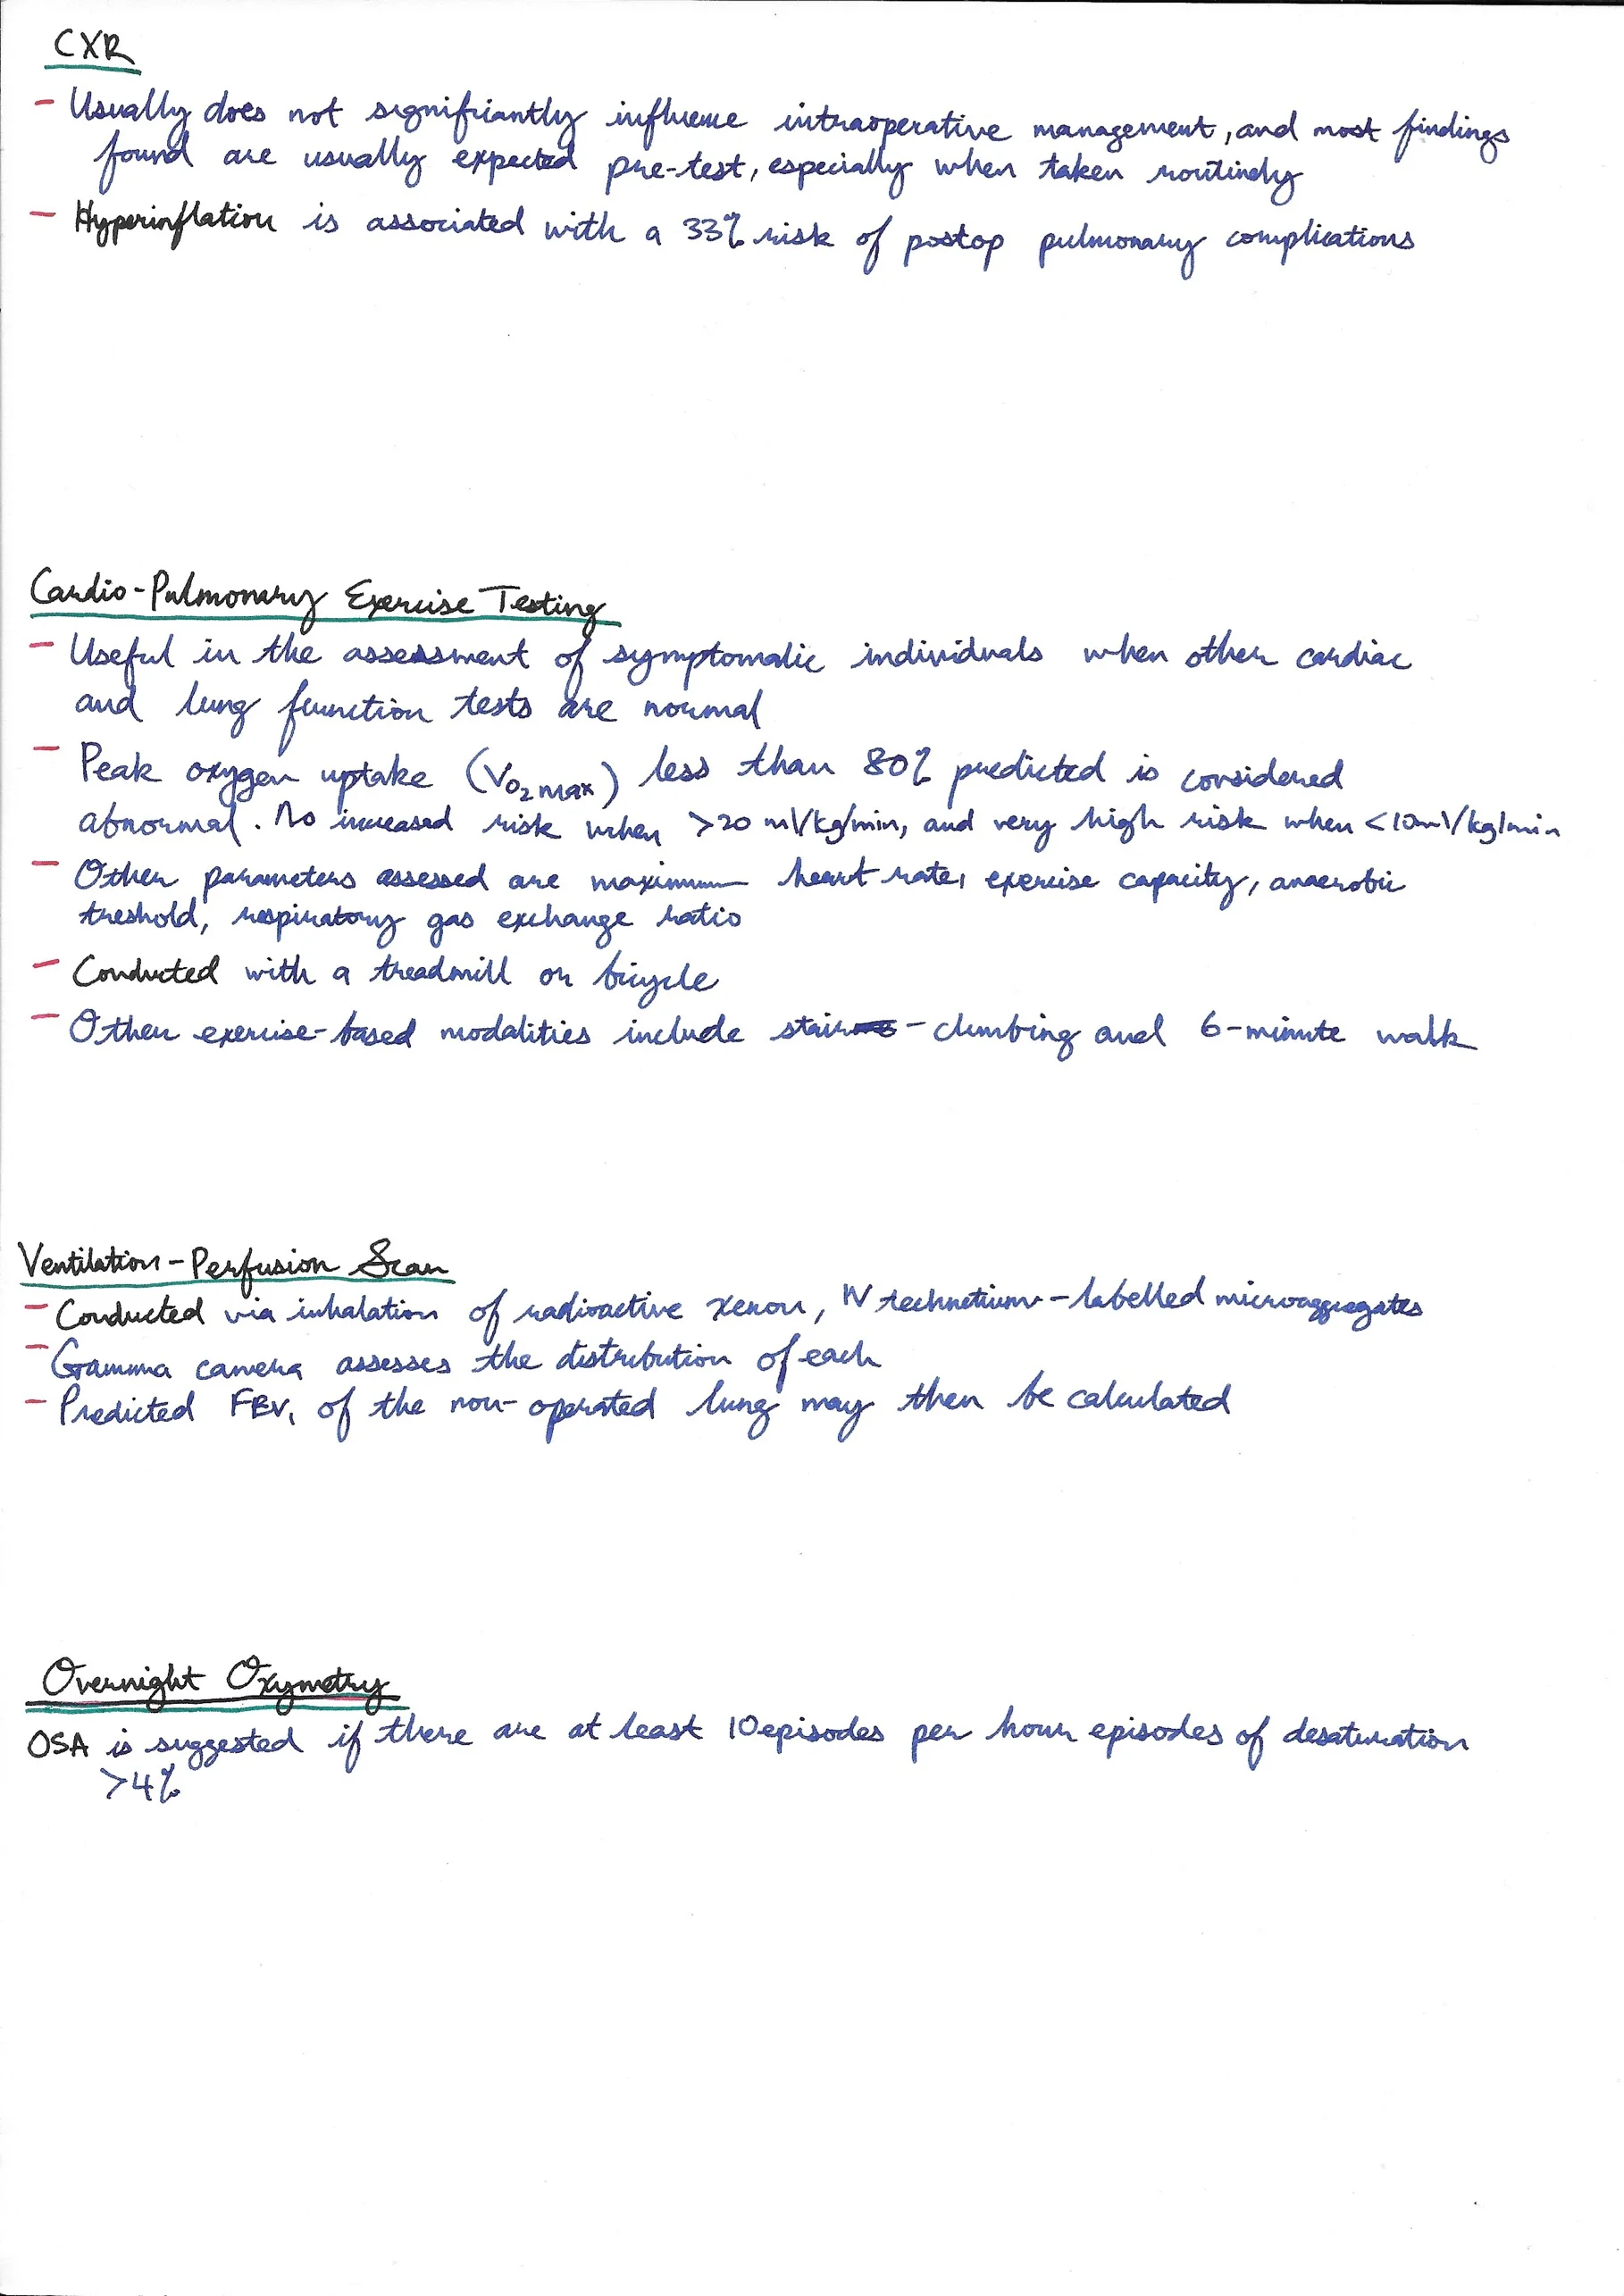 CXR
- Usually does not significantly influence intraoperative management, and most findings
found are usually expected pre-test, especially when taken routinely
- Hyperinflation is associated with a 33% risk of postop pulmonary complications
Cardio-Pulmonary Exercise Testing
- Useful in the assessment of symptomatic individuals when other cardiac
and lung function tests are normal
- Peak oxygen uptake (VO2max) less than 80% predicted is considered
abnormal. No increased risk when >20 ml/kg/min, and very high risk when <10ml/kg/min
- Other parameters assessed are maximum heart rate, exercise capacity, anaerobic
treshold, respiratory gas exchange ratio
- Conducted with a treadmill or bicycle
- Other exercise-based modalities include stair-climbing and 6-minute walk
Ventilation-Perfusion Scan
- Conducted via inhalation of radioactive xenon, IV technetium-labelled microaggregates
- Gamma camera assesses the distribution of each
- Predicted FEV1 of the non-operated lung may then be calculated
Overnight Oxymetry
OSA is suggested if there are at least 10 episodes per hour episodes of desaturation
>4%